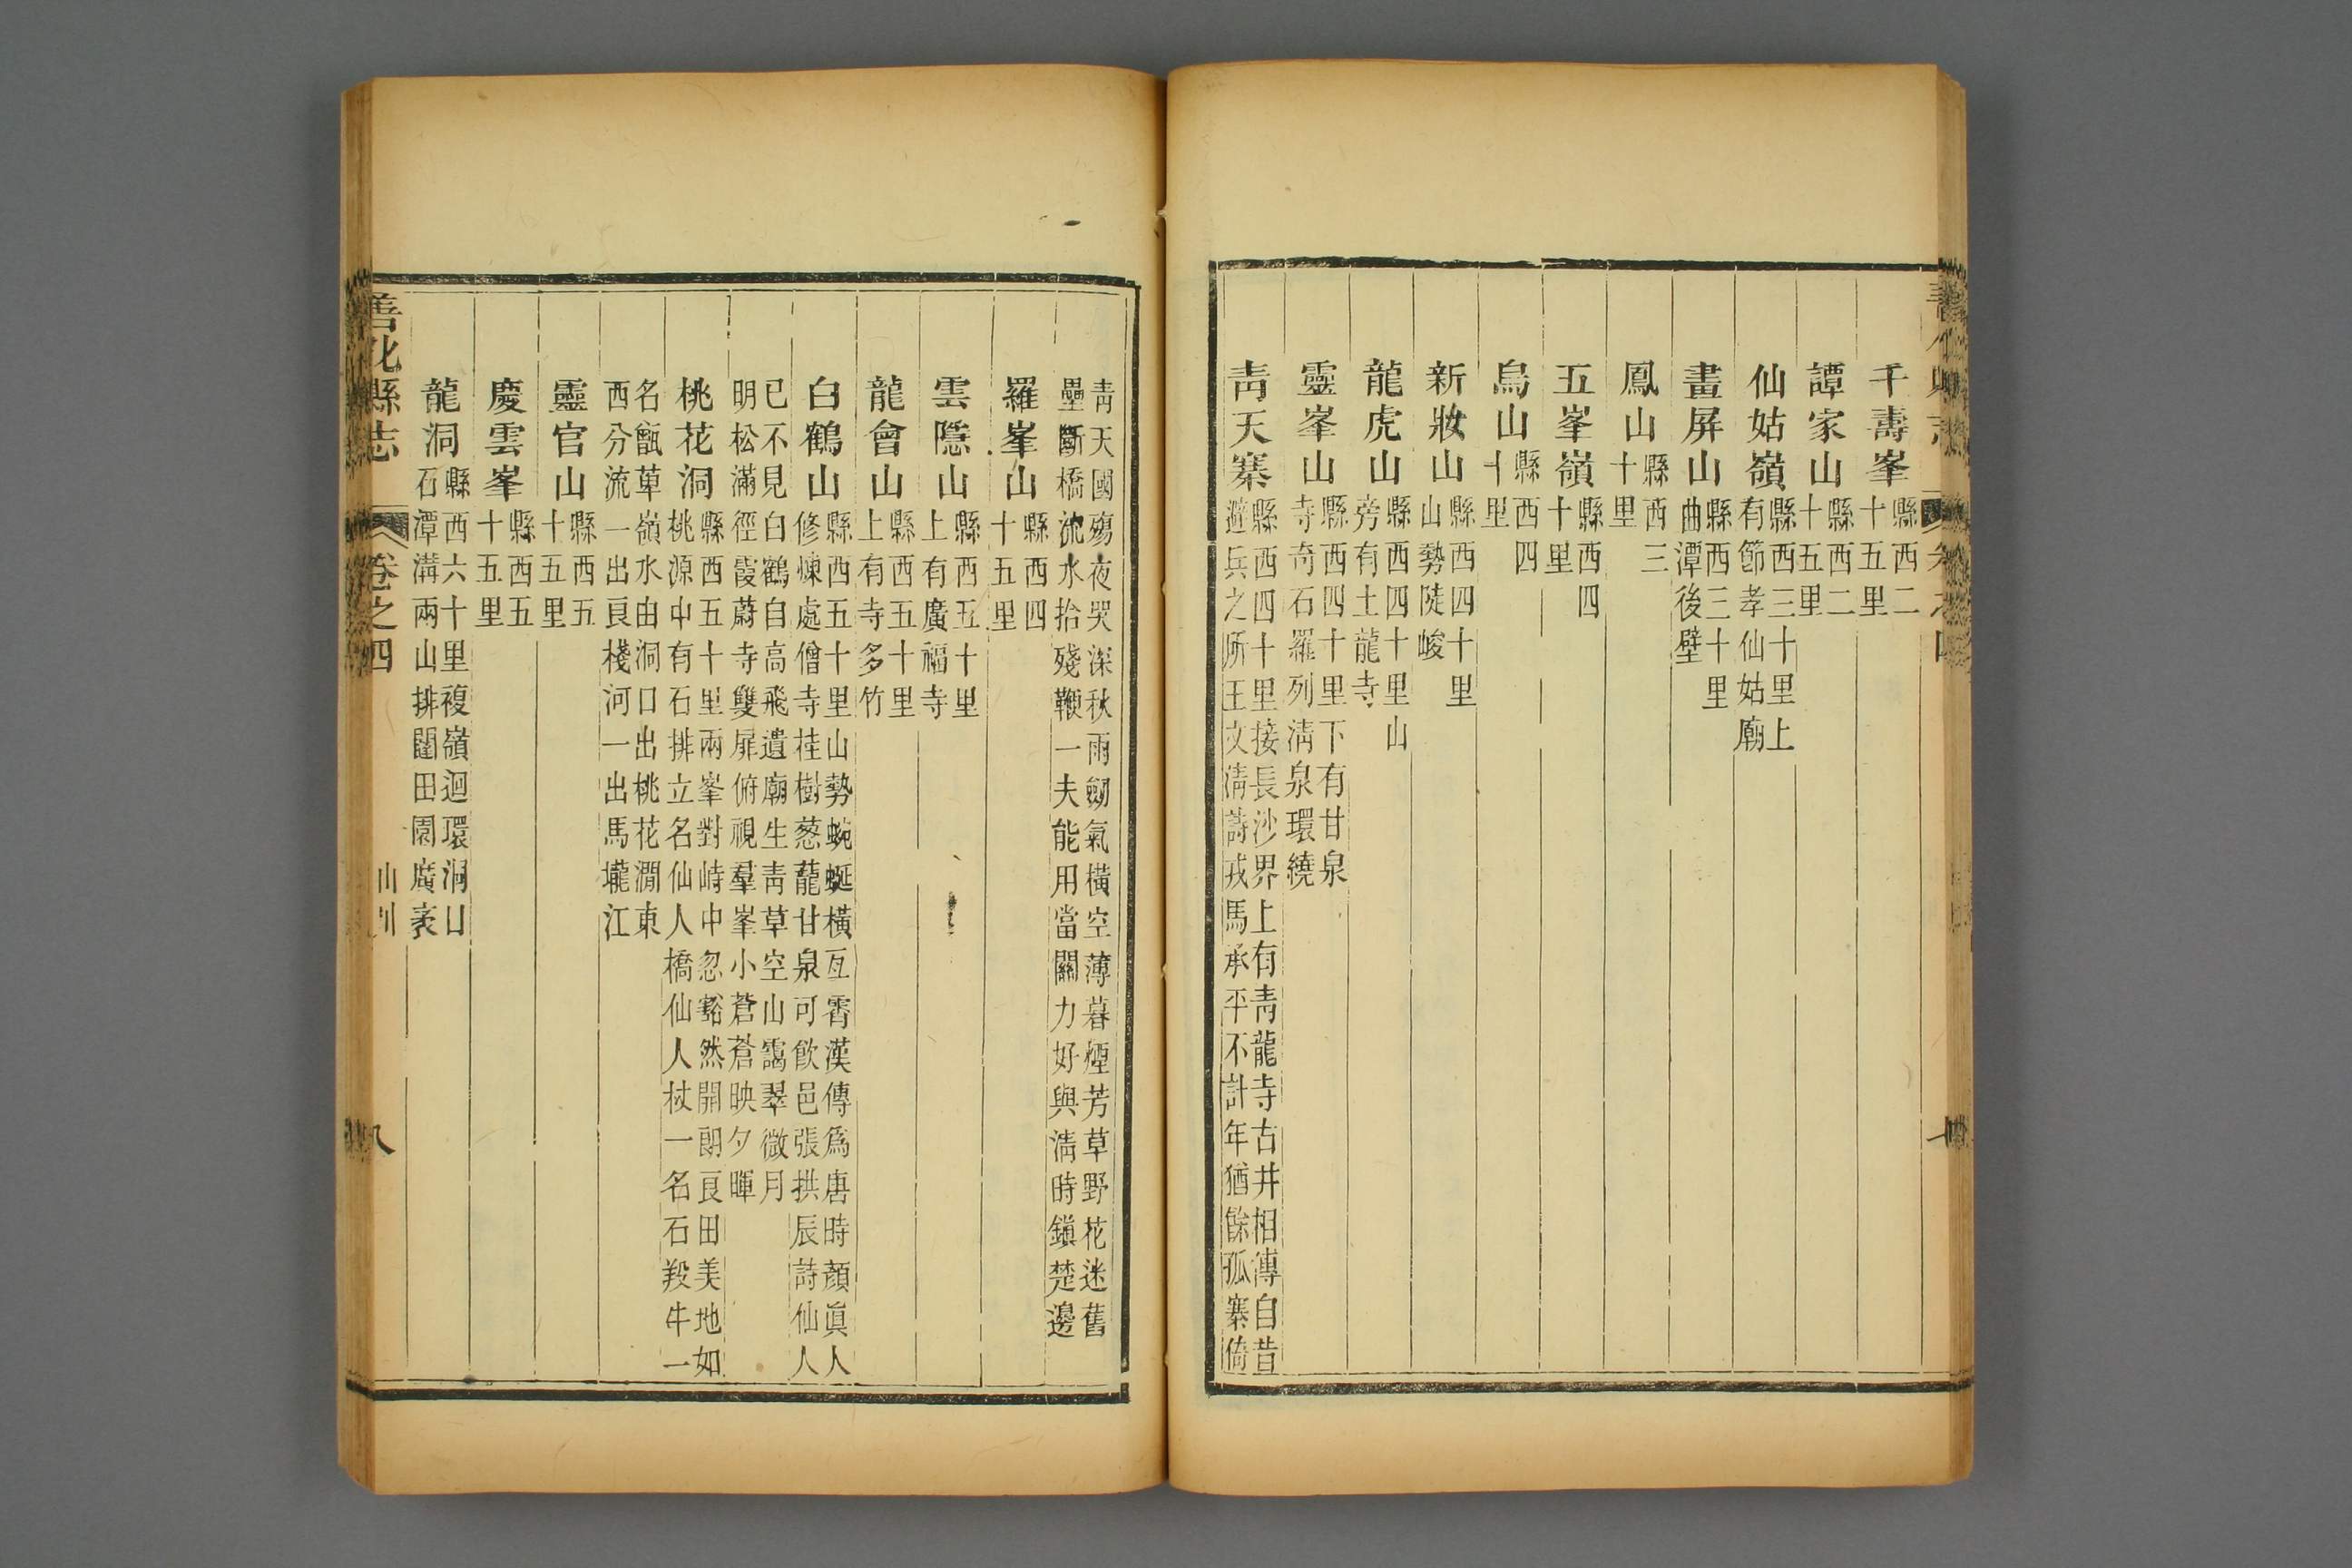 千壽峯縣西二十五里
譚家山縣西二十五里
仙姑嶺縣西三十里上有節孝仙姑廟
畫屏山縣西三十里曲潭後壁
鳳山縣西三十里
烏山縣西四十里
五峯嶺縣西四十里
新妝山縣西四十里山勢陡峻
龍虎山縣西四十里山旁有土龍寺
靈峯山縣西四十里下有甘泉寺奇石羅列淸泉環繞
靑天寨縣西四十里接長沙界上有靑龍寺古井相傳自昔避兵之所王文淸詩戎馬承平不計年猶餘孤寨倚
靑天國殤夜哭深秋雨劒氣橫空薄暮煙芳草野花迷舊壘斷橋流水拾殘鞭一夫能用當關力好與淸時鎭楚邊
羅峯山縣西四十五里
雲隱山縣西五十里上有廣福寺
龍會山縣西五十里上有寺多竹
白鶴山縣西五十里山勢蜿蜒橫亙霄漢傳爲唐時顏眞人修煉處僧寺桂樹葱蘢甘泉可飮邑張拱辰詩仙人
已不見白鶴自高飛遺廟生靑草空山靄翠微月明松滿徑霞蔚寺雙扉俯視羣峯小蒼蒼映夕暉
桃花洞縣西五十里兩峯對峙中忽豁然開朗良田美地如桃源中有石排立名仙人橋仙人杖一名石羖牛一
名甑單嶺水由洞口出桃花澗東西分流一出良棧河一出馬壠江
靈官山縣西五十五里
慶雲峯縣西五十五里
龍洞縣西六十里複嶺迴環洞口石潭溝兩山排闥田園廣袤
善化縣志
卷之四
山川
八